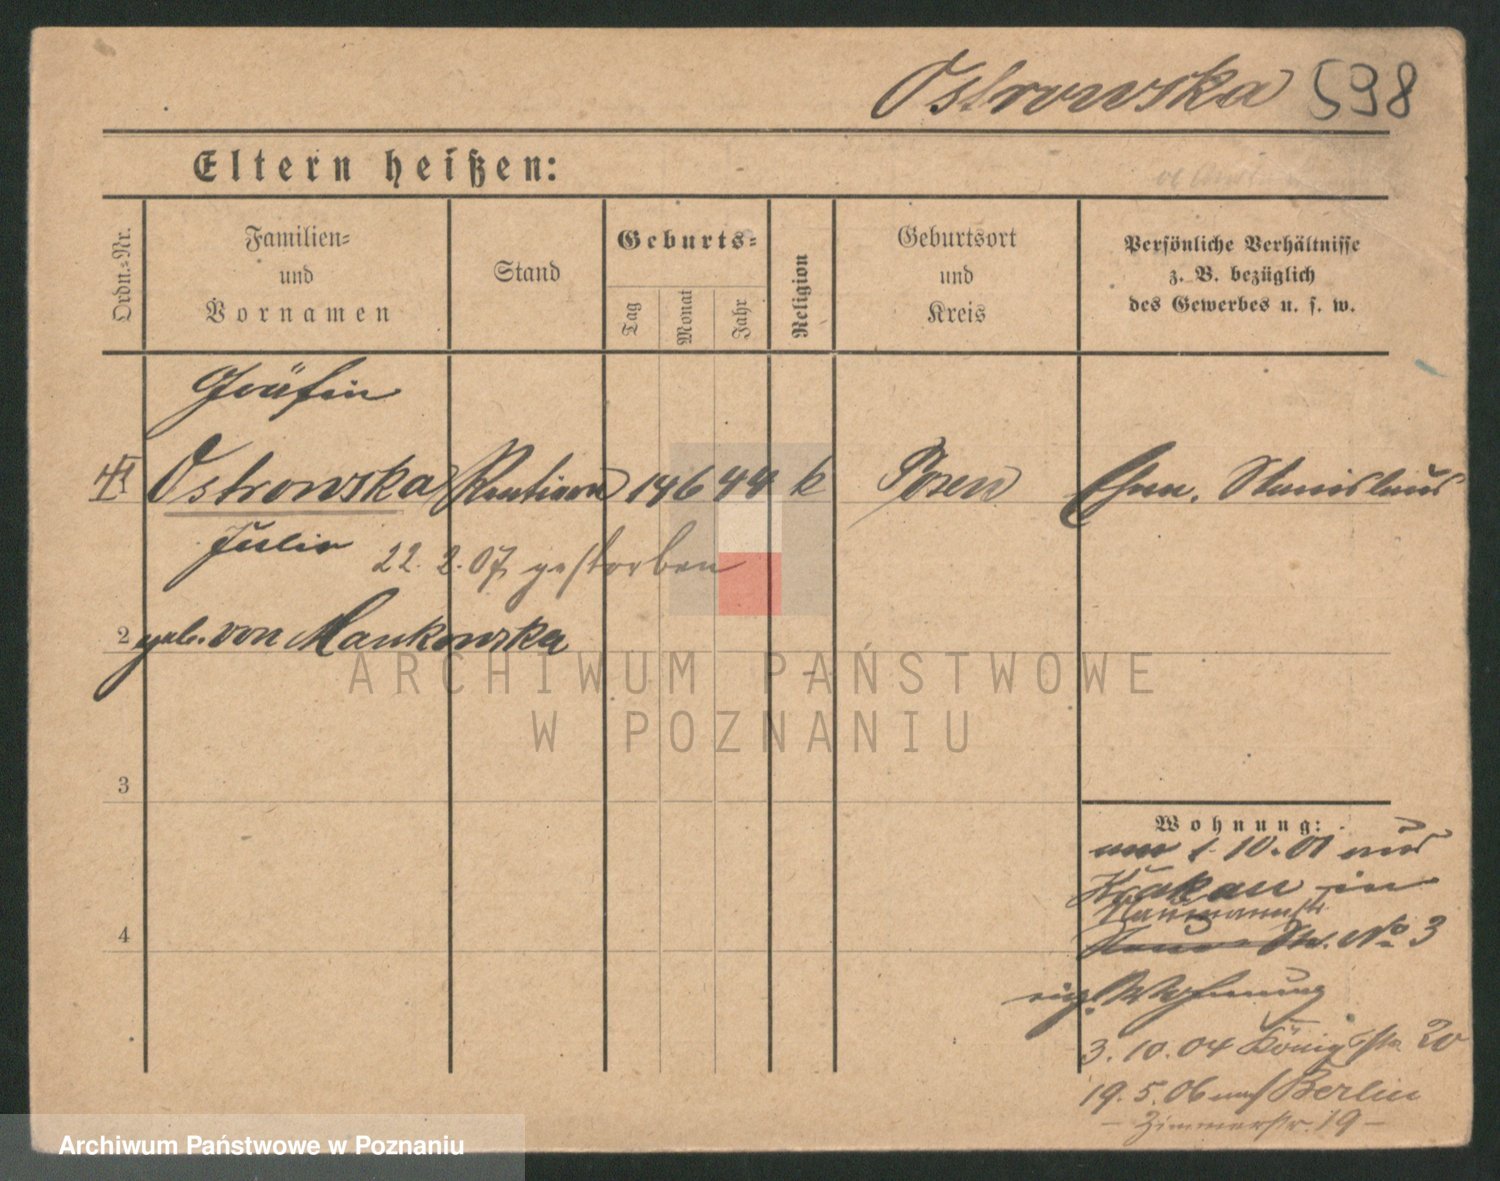 Ostrowska 598
Eltern heißen:
Ordn.-Nr.
Familien-
und
Vornamen
Stand
Geburts-
Tag
Monat
Jahr
Religion
Geburtsort
und
Kreis
Persönliche Verhältnisse
z. B. bezüglich
des Gewerbes u. s. w.
Gräfin
Ostrowska Rentiere 14 6 44 k Posen Ehem. Stanislaus
Julie
22. 2. 07 gestorben
2 geb. von Mankowska
ARCHIWUM PAŃSTWOWE
W POZNANIU
3
Wohnung:
1. 10. 01 aus
Krakau in
Naumannstr
4
Str. No 3
eig. Wohnung
3. 10. 04 Königstr 20
19. 5. 06 nach Berlin
- Zimmerstr. 19 -
Archiwum Państwowe w Poznaniu